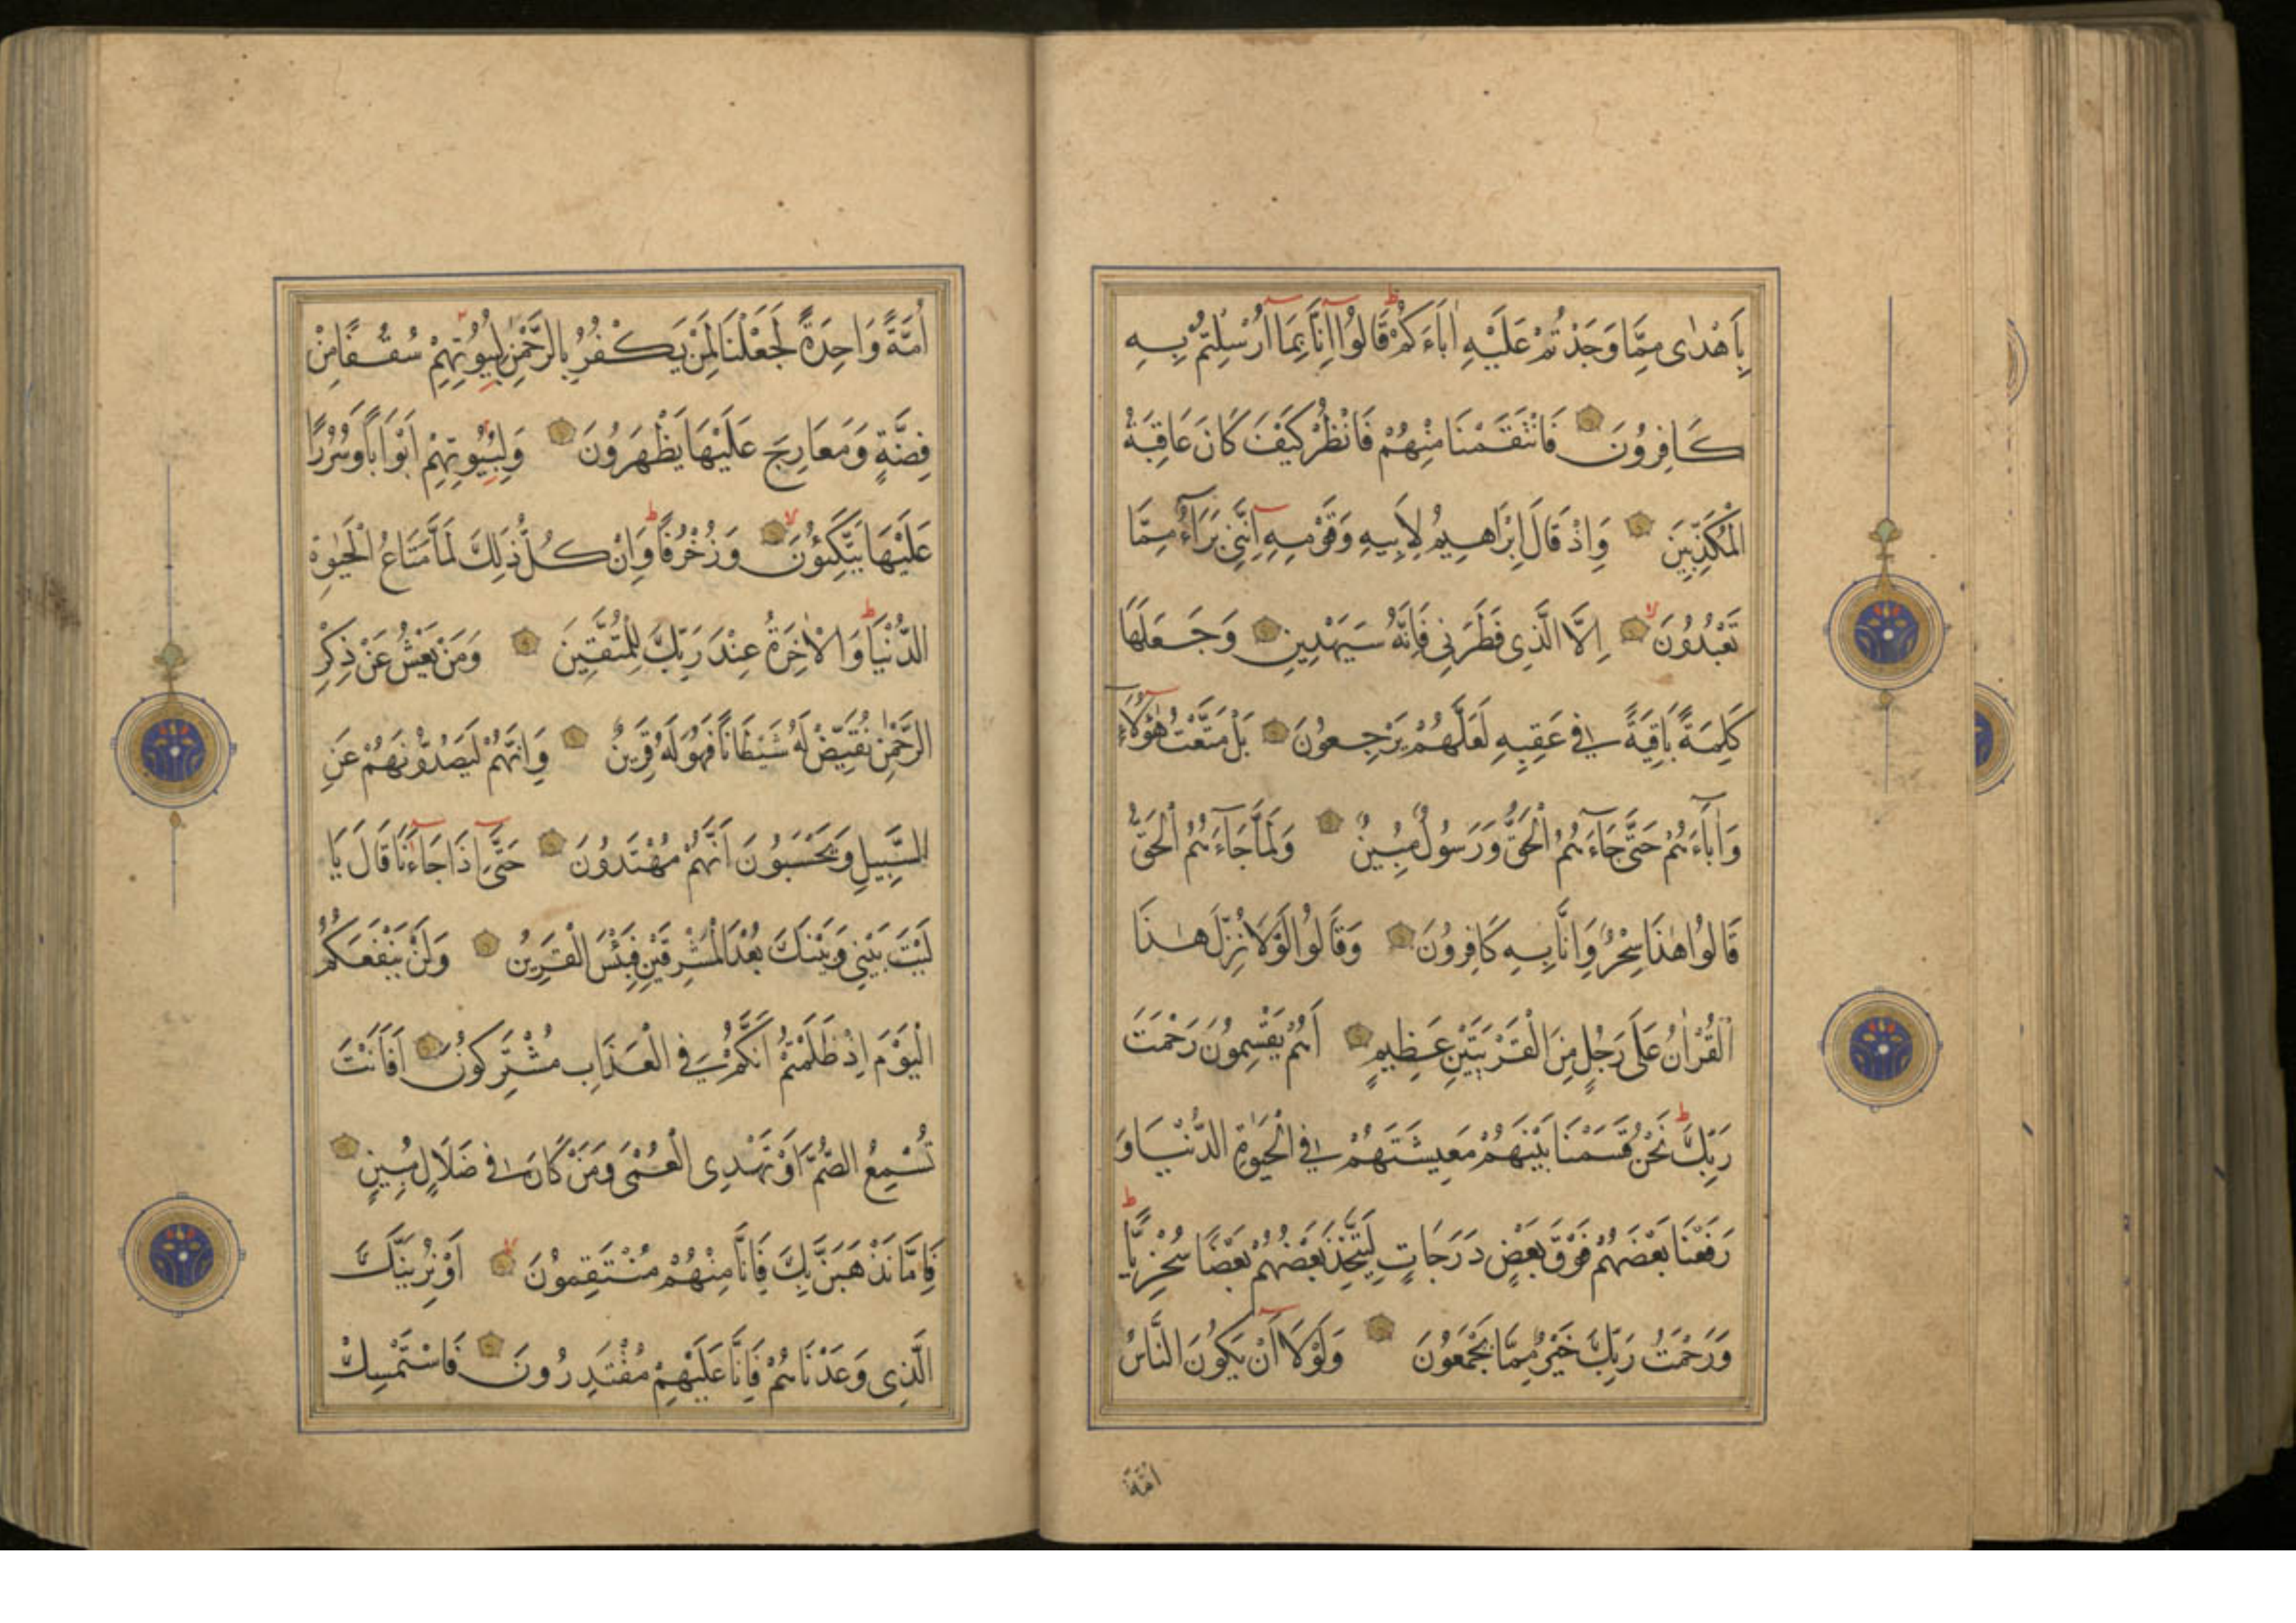 بِاَهْدٰى مِمَّا وَجَدْتُمْ عَلَيْهِ اٰبَاءَكُمْ قَالُوا اِنَّا بِمَا اُرْسِلْتُمْ بِهِ
كَافِرُونَ فَانْتَقَمْنَا مِنْهُمْ فَانْظُرْ كَيْفَ كَانَ عَاقِبَةُ
الْمُكَذِّبِينَ وَاِذْ قَالَ اِبْرَاهِيمُ لِاَبِيهِ وَقَوْمِهِ اِنَّنِي بَرَآءٌ مِمَّا
تَعْبُدُونَ اِلَّا الَّذِي فَطَرَنِي فَاِنَّهُ سَيَهْدِينِ وَجَعَلَهَا
كَلِمَةً بَاقِيَةً فِي عَقِبِهِ لَعَلَّهُمْ يَرْجِعُونَ بَلْ مَتَّعْتُ هٰؤُلَآءِ
وَاٰبَآءَهُمْ حَتّٰى جَآءَهُمُ الْحَقُّ وَرَسُولٌ مُبِينٌ وَلَمَّا جَاءَهُمُ الْحَقُّ
قَالُوا هٰذَا سِحْرٌ وَاِنَّا بِهِ كَافِرُونَ وَقَالُوا لَوْلَا نُزِّلَ هٰذَا
الْقُرْاٰنُ عَلَى رَجُلٍ مِنَ الْقَرْيَتَيْنِ عَظِيمٍ اَهُمْ يَقْسِمُونَ رَحْمَتَ
رَبِّكَ نَحْنُ قَسَمْنَا بَيْنَهُمْ مَعِيشَتَهُمْ فِي الْحَيٰوةِ الدُّنْيَا وَ
رَفَعْنَا بَعْضَهُمْ فَوْقَ بَعْضٍ دَرَجَاتٍ لِيَتَّخِذَ بَعْضُهُمْ بَعْضًا سُخْرِيًّا
وَرَحْمَتُ رَبِّكَ خَيْرٌ مِمَّا يَجْمَعُونَ وَلَوْلَا اَنْ يَكُونَ النَّاسُ
اُمَّةً
اُمَّةً وَاحِدَةً لَجَعَلْنَا لِمَنْ يَكْفُرُ بِالرَّحْمٰنِ لِبُيُوتِهِمْ سُقُفًا مِنْ
فِضَّةٍ وَمَعَارِجَ عَلَيْهَا يَظْهَرُونَ وَلِبُيُوتِهِمْ اَبْوَابًا وَسُرُرًا
عَلَيْهَا يَتَّكِئُونَ وَزُخْرُفًا وَاِنْ كُلُّ ذٰلِكَ لَمَّا مَتَاعُ الْحَيٰوةِ
الدُّنْيَا وَالْاٰخِرَةُ عِنْدَ رَبِّكَ لِلْمُتَّقِينَ وَمَنْ يَعْشُ عَنْ ذِكْرِ
الرَّحْمٰنِ نُقَيِّضْ لَهُ شَيْطَانًا فَهُوَ لَهُ قَرِينٌ وَاِنَّهُمْ لَيَصُدُّونَهُمْ عَنِ
السَّبِيلِ وَيَحْسَبُونَ اَنَّهُمْ مُهْتَدُونَ حَتّٰى اِذَا جَاءَنَا قَالَ يَا
لَيْتَ بَيْنِي وَبَيْنَكَ بُعْدَ الْمَشْرِقَيْنِ فَبِئْسَ الْقَرِينُ وَلَنْ يَنْفَعَكُمُ
الْيَوْمَ اِذْ ظَلَمْتُمْ اَنَّكُمْ فِي الْعَذَابِ مُشْتَرِكُونَ اَفَاَنْتَ
تُسْمِعُ الصُّمَّ اَوْ تَهْدِى الْعُمْىَ وَمَنْ كَانَ فِي ضَلَالٍ مُبِينٍ
فَاِمَّا نَذْهَبَنَّ بِكَ فَاِنَّا مِنْهُمْ مُنْتَقِمُونَ اَوْ نُرِيَنَّكَ
الَّذِى وَعَدْنَاهُمْ فَاِنَّا عَلَيْهِمْ مُقْتَدِرُونَ فَاسْتَمْسِكْ